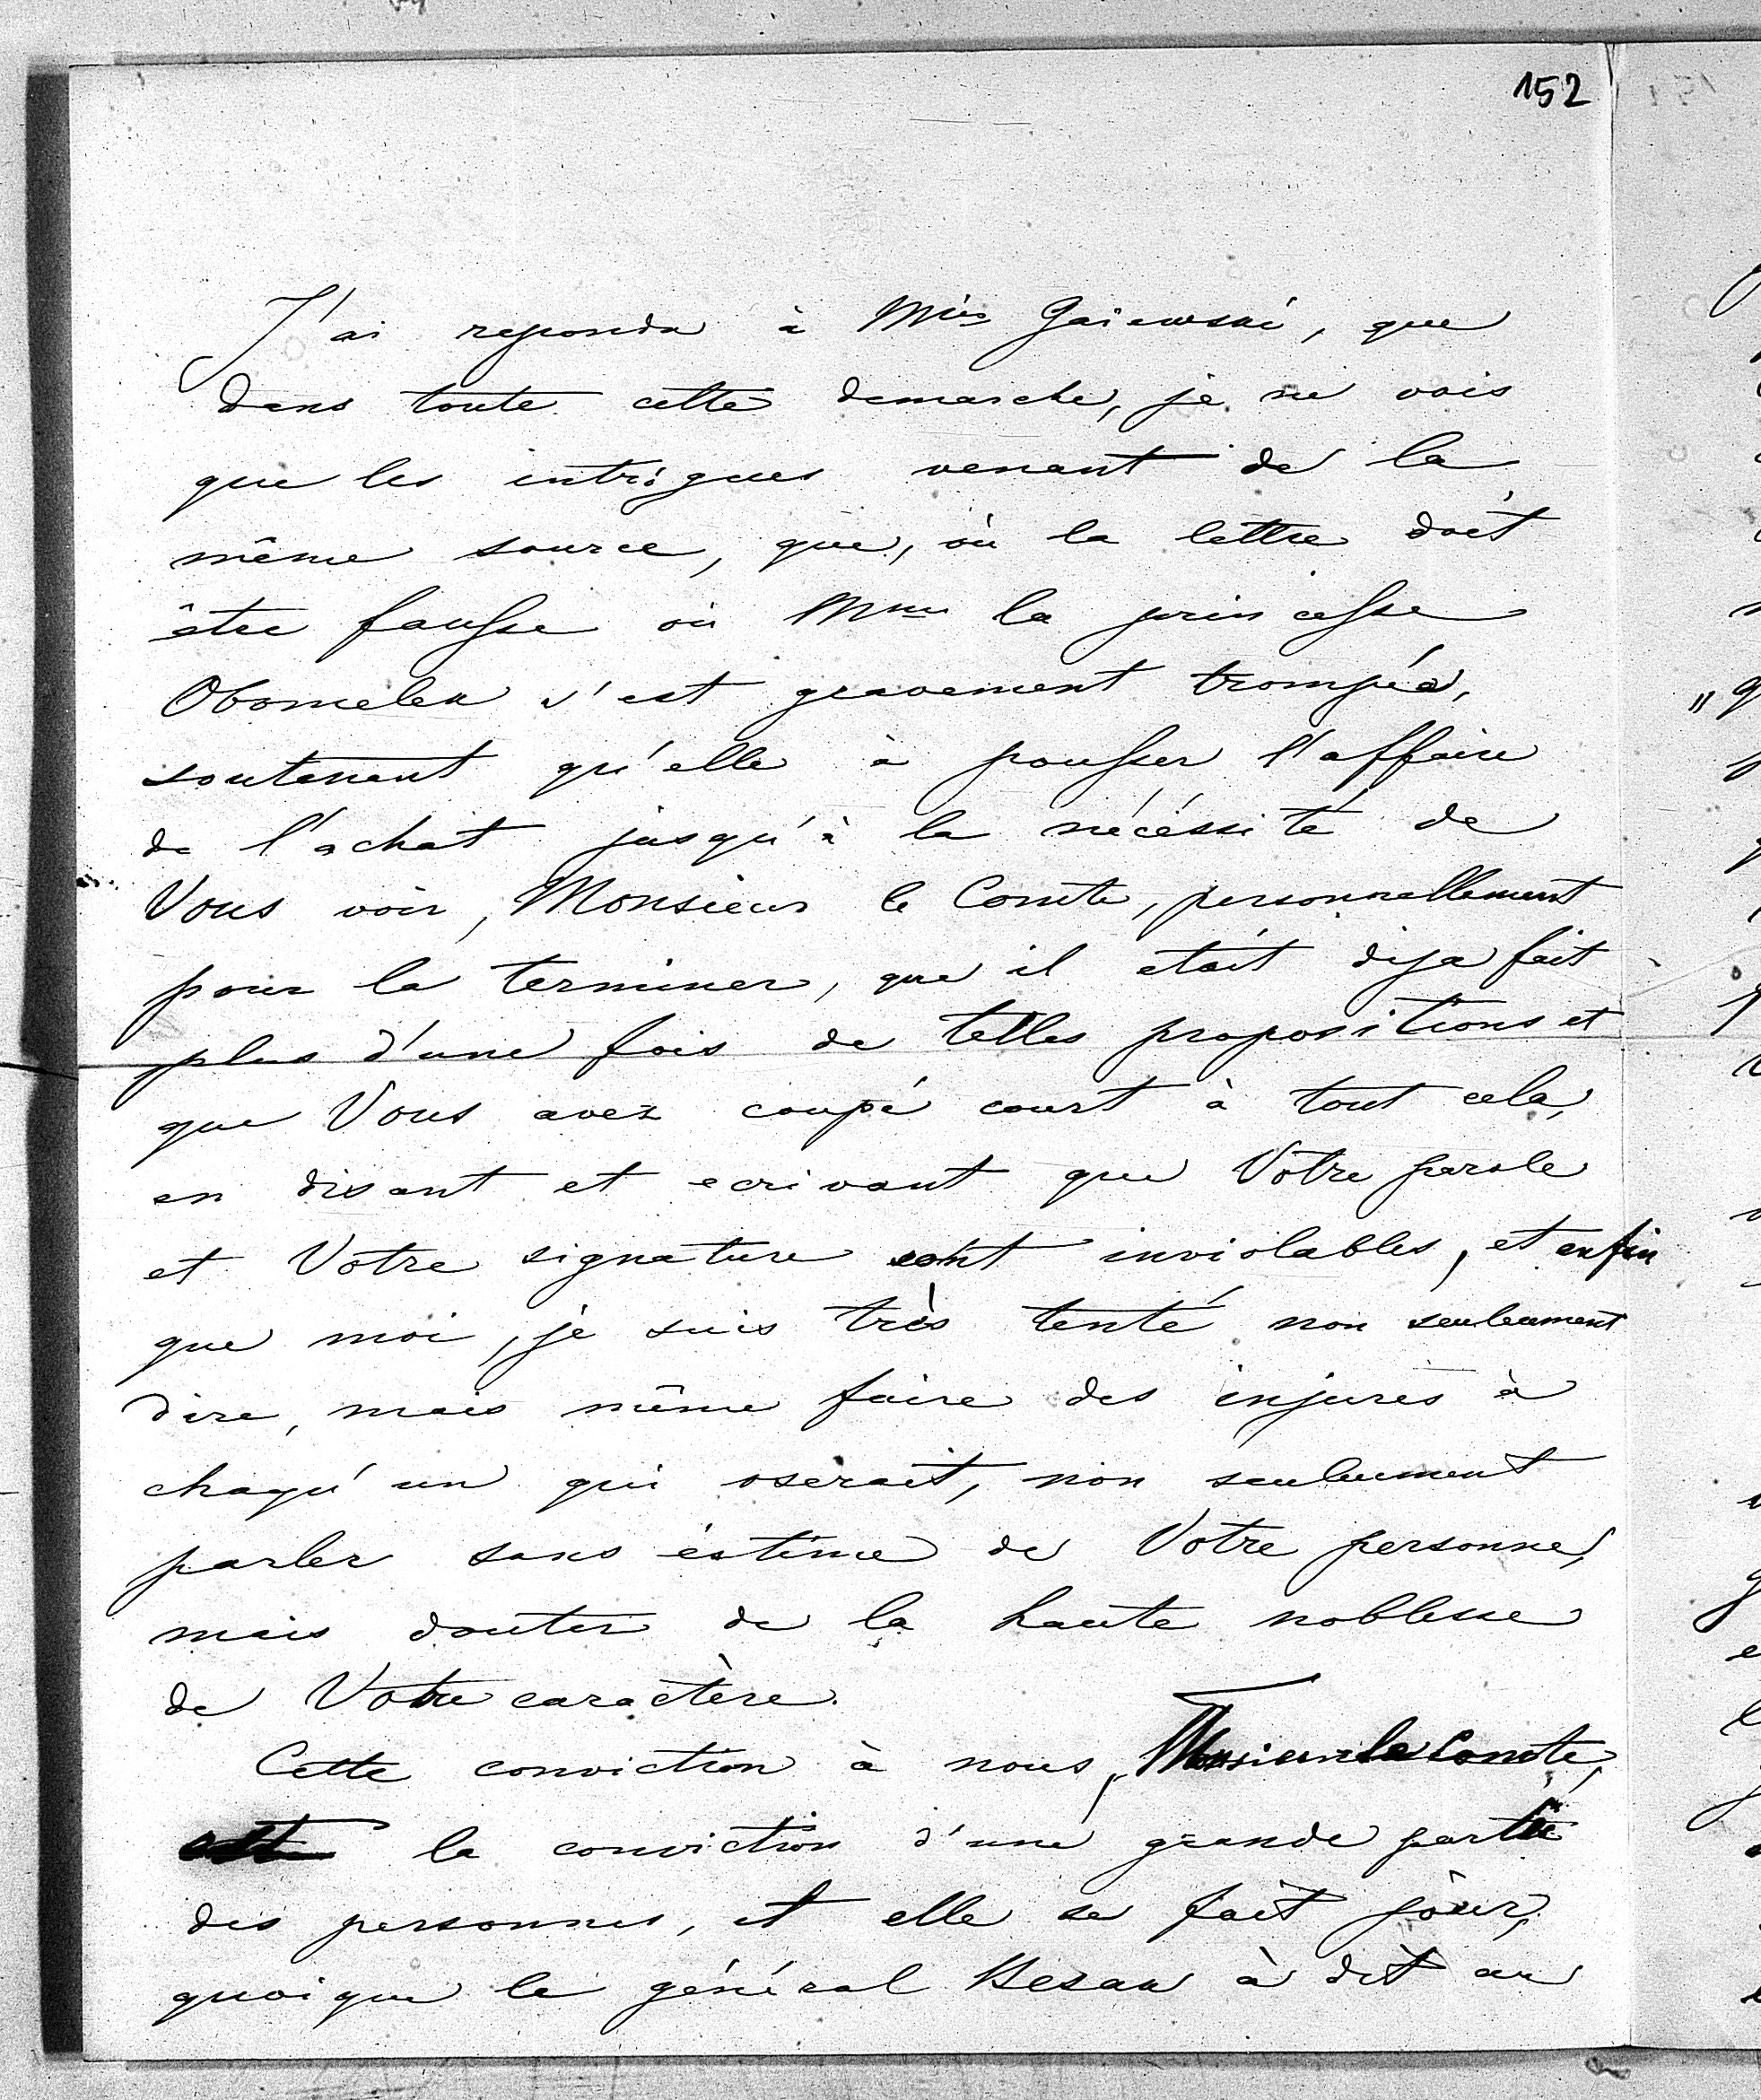 152
J'ai reponda à Mrs Gaiewski, que
dans toute cette demarche, je ne vois
que les intrigues venant de la
même source, que, où la lettre doit
être fausse où Mme la princesse
Obomelek s'est gravement trompée,
soutenant qu'elle à pousser l'affaire
de l'achat jusqu'à la nécéssité de
Vous voir, Monsieur le Comte, personnellement
pour la terminer, que il était dija fait
plus d'une fois de telles propositions et
que Vous avez coupé court à tout cela,
en disant et ecrivant que Votre parole
et Votre signature sont inviolables, et enfin
que moi, je suis très tenté non seuleument
dire, mais même faire des injures à
chaqu'un qui oserait, non seuleument
parler sans éstime de Votre personne,
mais douter de la haute noblesse
de Votre caractère.
Cette conviction à nous, Monsieur le Comte,
est la conviction d'une grande partie
des personnes, et elle se fait jour,
quoique le général Besak à dit au